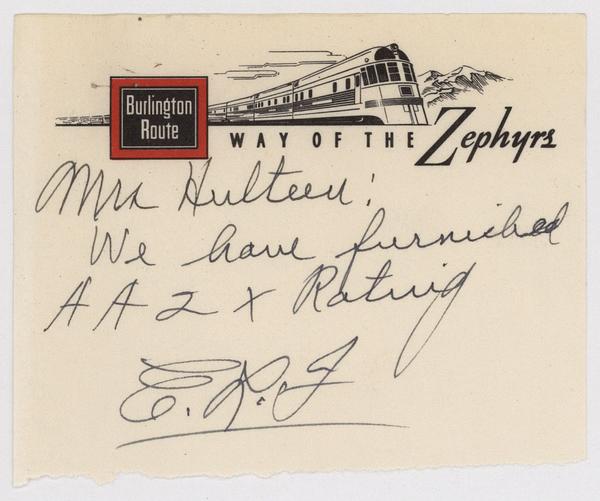 Burlington
Route
WAY OF THE Zephyrs
Mrs Hulteen:
We have furnished
AA2X Rating
E.R.J